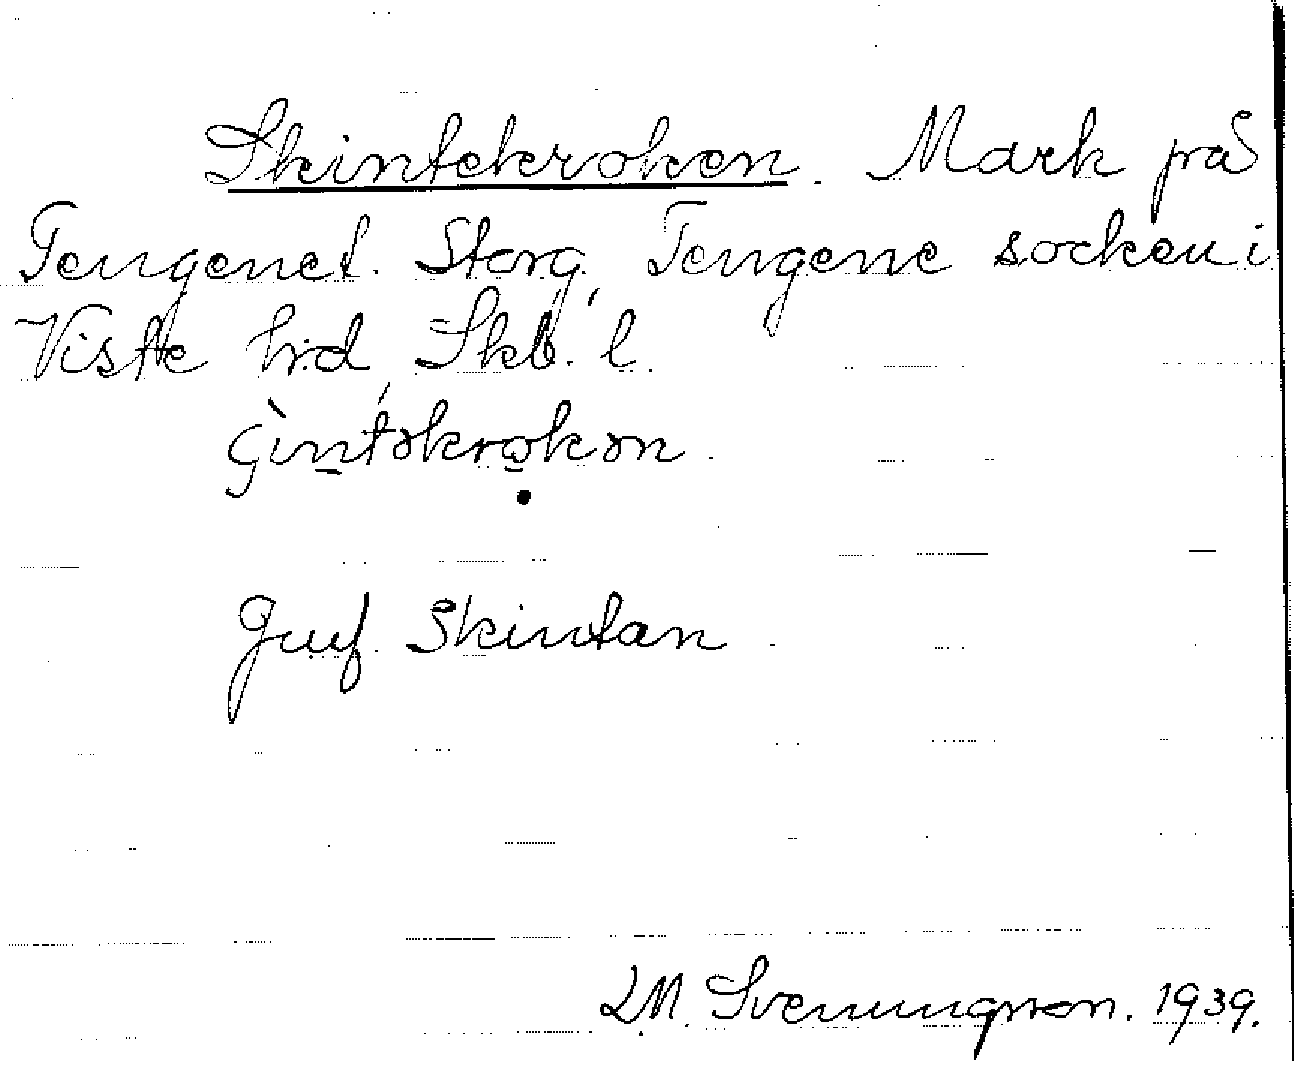 Skintekroken. Mark på
Tengenet. Storg, Tengene socken i
Viste hrd, Skb. l.
Jmf. Skintan
LM. Svenungsson. 1939.